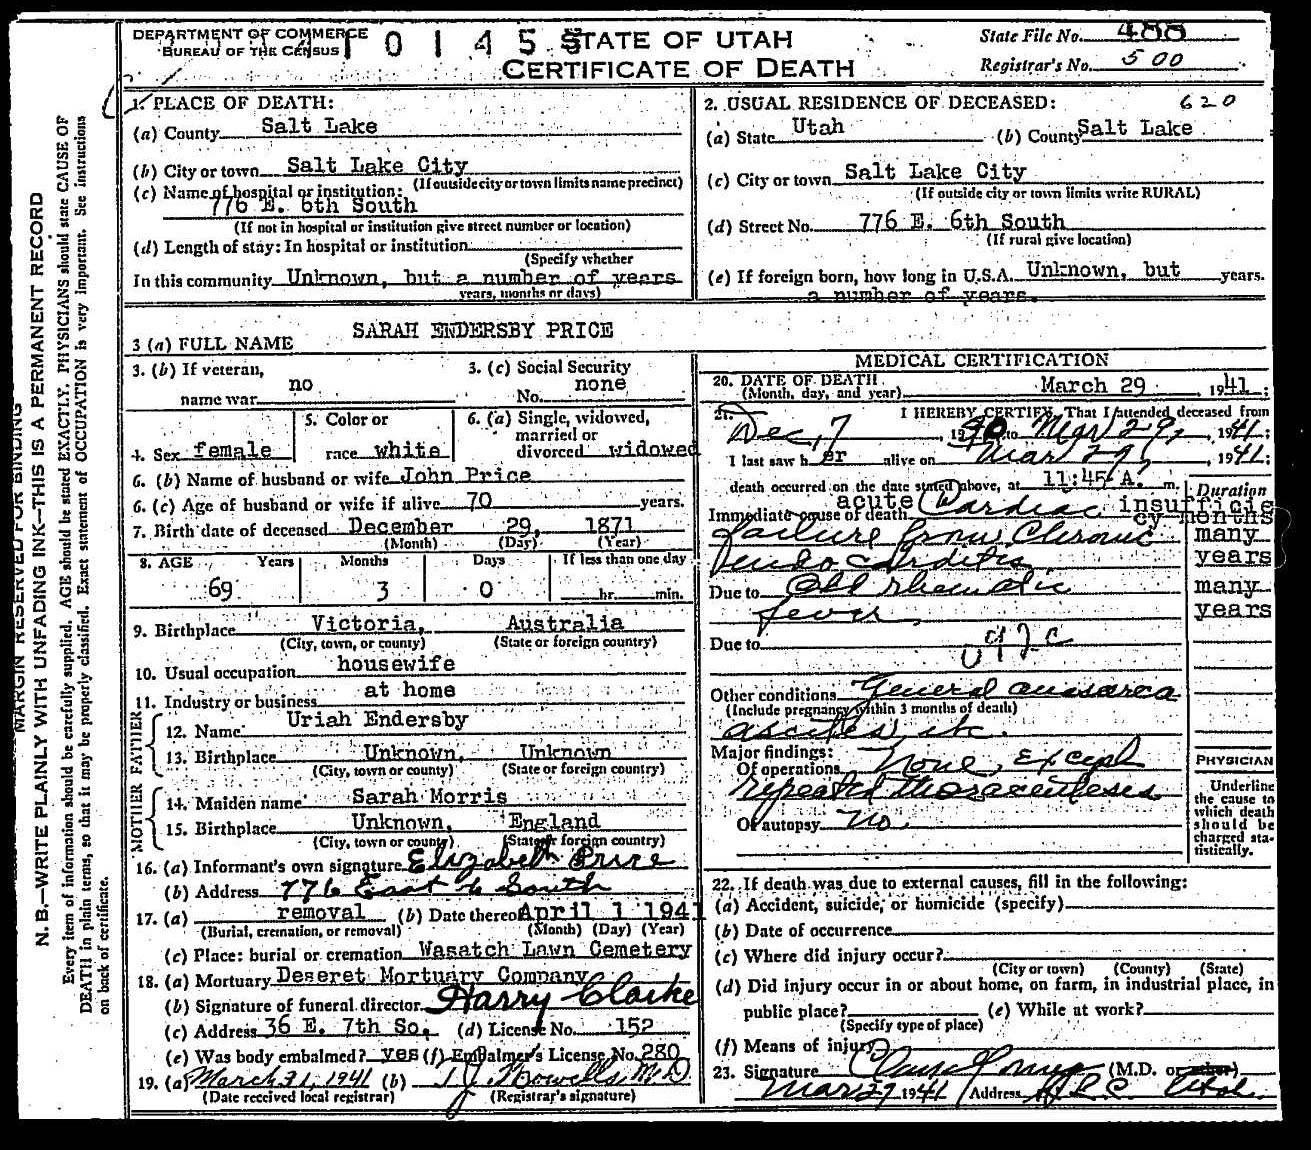 DEPARTMENT OF COMMERCE
BUREAU OF THE CENSUS
1 0 1 4 5 5
STATE OF UTAH
CERTIFICATE OF DEATH
State File No. 488
Registrar's No. 500
1. PLACE OF DEATH:
(a) County Salt Lake
(b) City or town Salt Lake City
(If outside city or town limits name precinct)
(c) Name of hospital or institution:
776 E. 6th South
(If not in hospital or institution give street number or location)
(d) Length of stay: In hospital or institution
(Specify whether
In this community Unknown, but a number of years
years, months or days)
2. USUAL RESIDENCE OF DECEASED: 620
(a) State Utah (b) County Salt Lake
(c) City or town Salt Lake City
(If outside city or town limits write RURAL)
(d) Street No. 776 E. 6th South
(If rural give location)
(e) If foreign born, how long in U.S.A. Unknown, but years.
a number of years.
3 (a) FULL NAME SARAH ENDERSBY PRICE
3. (b) If veteran,
name war no
3. (c) Social Security
No. none
4. Sex female
5. Color or
race white
6. (a) Single, widowed,
married or
divorced widowed
6. (b) Name of husband or wife John Price
6. (c) Age of husband or wife if alive 70 years.
7. Birth date of deceased December 29, 1871
(Month) (Day) (Year)
8. AGE Years Months Days If less than one day
69 3 0 hr. min.
9. Birthplace Victoria, Australia
(City, town, or county) (State or foreign country)
10. Usual occupation housewife
11. Industry or business at home
FATHER
12. Name Uriah Endersby
13. Birthplace Unknown, Unknown
(City, town or county) (State or foreign country)
MOTHER
14. Maiden name Sarah Morris
15. Birthplace Unknown, England
(City, town or county) (State or foreign country)
16. (a) Informant's own signature Elizabeth Price
(b) Address 776 East 6 South
17. (a) removal (b) Date thereof April 1 1941
(Burial, cremation, or removal) (Month) (Day) (Year)
(c) Place: burial or cremation Wasatch Lawn Cemetery
18. (a) Mortuary Deseret Mortuary Company
(b) Signature of funeral director Harry Clarke
(c) Address 36 E. 7th So. (d) License No. 152
(e) Was body embalmed? yes (f) Embalmer's License No. 280
19. (a) March 31, 1941 (b) T. J. Howells, M D
(Date received local registrar) (Registrar's signature)
MEDICAL CERTIFICATION
20. DATE OF DEATH
(Month, day, and year) March 29, 1941;
21. I HEREBY CERTIFY, That I attended deceased from
Dec, 7, 1940 to Mar 29, 1941;
I last saw her alive on Mar 29, 1941;
death occurred on the date stated above, at 11:45 A. m.
Duration
Immediate cause of death acute Cardiac insufficiency months
failure from Chronic many
Endo carditis years
Due to Old rhematic many
fever, years
Due to
Other conditions General anasarca
(Include pregnancy within 3 months of death)
ascites, etc.
Major findings:
Of operations None, except
repeated thoracenteses
Of autopsy no.
PHYSICIAN
Underline
the cause to
which death
should be
charged sta-
tistically.
22. If death was due to external causes, fill in the following:
(a) Accident, suicide, or homicide (specify)
(b) Date of occurrence
(c) Where did injury occur?
(City or town) (County) (State)
(d) Did injury occur in or about home, on farm, in industrial place, in
public place? (e) While at work?
(Specify type of place)
(f) Means of injury
23. Signature (M.D. or other)
Mar 29 1941 Address S.L.C. Utah.
MARGIN RESERVED FOR BINDING
N. B.—WRITE PLAINLY WITH UNFADING INK—THIS IS A PERMANENT RECORD
Every item of information should be carefully supplied. AGE should be stated EXACTLY. PHYSICIANS should state CAUSE OF
DEATH in plain terms, so that it may be properly classified. Exact statement of OCCUPATION is very important. See instructions
on back of certificate.